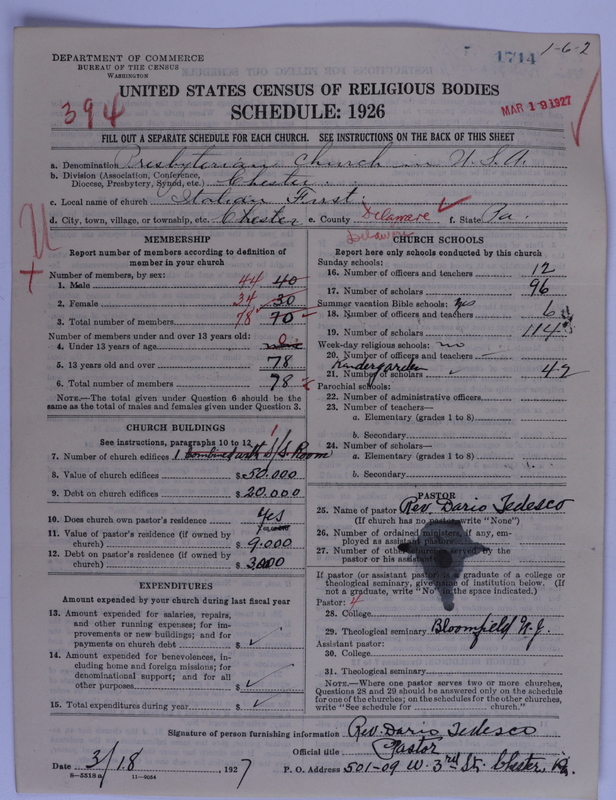 DEPARTMENT OF COMMERCE
BUREAU OF THE CENSUS
WASHINGTON
1714
1-6-2
UNITED STATES CENSUS OF RELIGIOUS BODIES
394
SCHEDULE: 1926
MAR 19 1927
FILL OUT A SEPARATE SCHEDULE FOR EACH CHURCH. SEE INSTRUCTIONS ON THE BACK OF THIS SHEET
a. Denomination Presbyterian Church in U.S.A.
b. Division (Association, Conference,
Diocese, Presbytery, Synod, etc.) Chester
c. Local name of church Italian First
d. City, town, village, or township, etc. Chester e. County Delaware f. State Pa.
Delaware
MEMBERSHIP
Report number of members according to definition of
member in your church
Number of members, by sex:
1. Male 44 40
2. Female 34 30
3. Total number of members 78 70
Number of members under and over 13 years old:
4. Under 13 years of age 0
5. 13 years old and over 78
6. Total number of members 78
NOTE.—The total given under Question 6 should be
same as the total of males and females given under Question 3.
CHURCH BUILDINGS
See instructions, paragraphs 10 to 12
7. Number of church edifices 1 combined with S/S. Room
8. Value of church edifices $50.000
9. Debt on church edifices $20.000
10. Does church own pastor's residence yes
11. Value of pastor's residence (if owned by
church) $9.000
12. Debt on pastor's residence (if owned by
church) $3.000
EXPENDITURES
Amount expended by your church during last fiscal year
13. Amount expended for salaries, repairs,
and other running expenses; for im-
provements or new buildings; and for
payments on church debt $ ✓
14. Amount expended for benevolences, in-
cluding home and foreign missions; for
denominational support; and for all
other purposes $ ✓
15. Total expenditures during year $ ✓
CHURCH SCHOOLS
Report here only schools conducted by this church
Sunday schools:
16. Number of officers and teachers 12
17. Number of scholars 96
Summer vacation Bible schools: yes
18. Number of officers and teachers 6
19. Number of scholars 114
Week-day religious schools: no
20. Number of officers and teachers —
Kindergarden
21. Number of scholars ✓ 42
Parochial schools:
22. Number of administrative officers
23. Number of teachers—
a. Elementary (grades 1 to 8)
b. Secondary
24. Number of scholars—
a. Elementary (grades 1 to 8)
b. Secondary
PASTOR
25. Name of pastor Rev. Dario Tedesco
(If church has no pastor write "None")
26. Number of ordained ministers, if any, em-
ployed as assistant pastors
27. Number of other churches served by the
pastor or his assistant
If pastor (or assistant pastor) is graduate of a college or
theological seminary, give name of institution below. (If
not a graduate, write "No" in the space indicated.)
Pastor: 4
28. College
29. Theological seminary Bloomfield N.J.
Assistant pastor:
30. College
31. Theological seminary
NOTE.—Where one pastor serves two or more churches,
Questions 28 and 29 should be answered only on the schedule
for one of the churches; on the schedules for the other churches,
write "See schedule for church."
Signature of person furnishing information Rev. Dario Tedesco
Official title Pastor
Date 3/18, 1927
P. O. Address 501-09 W. 3rd St. Chester, Pa.
8—3318a 11—9054